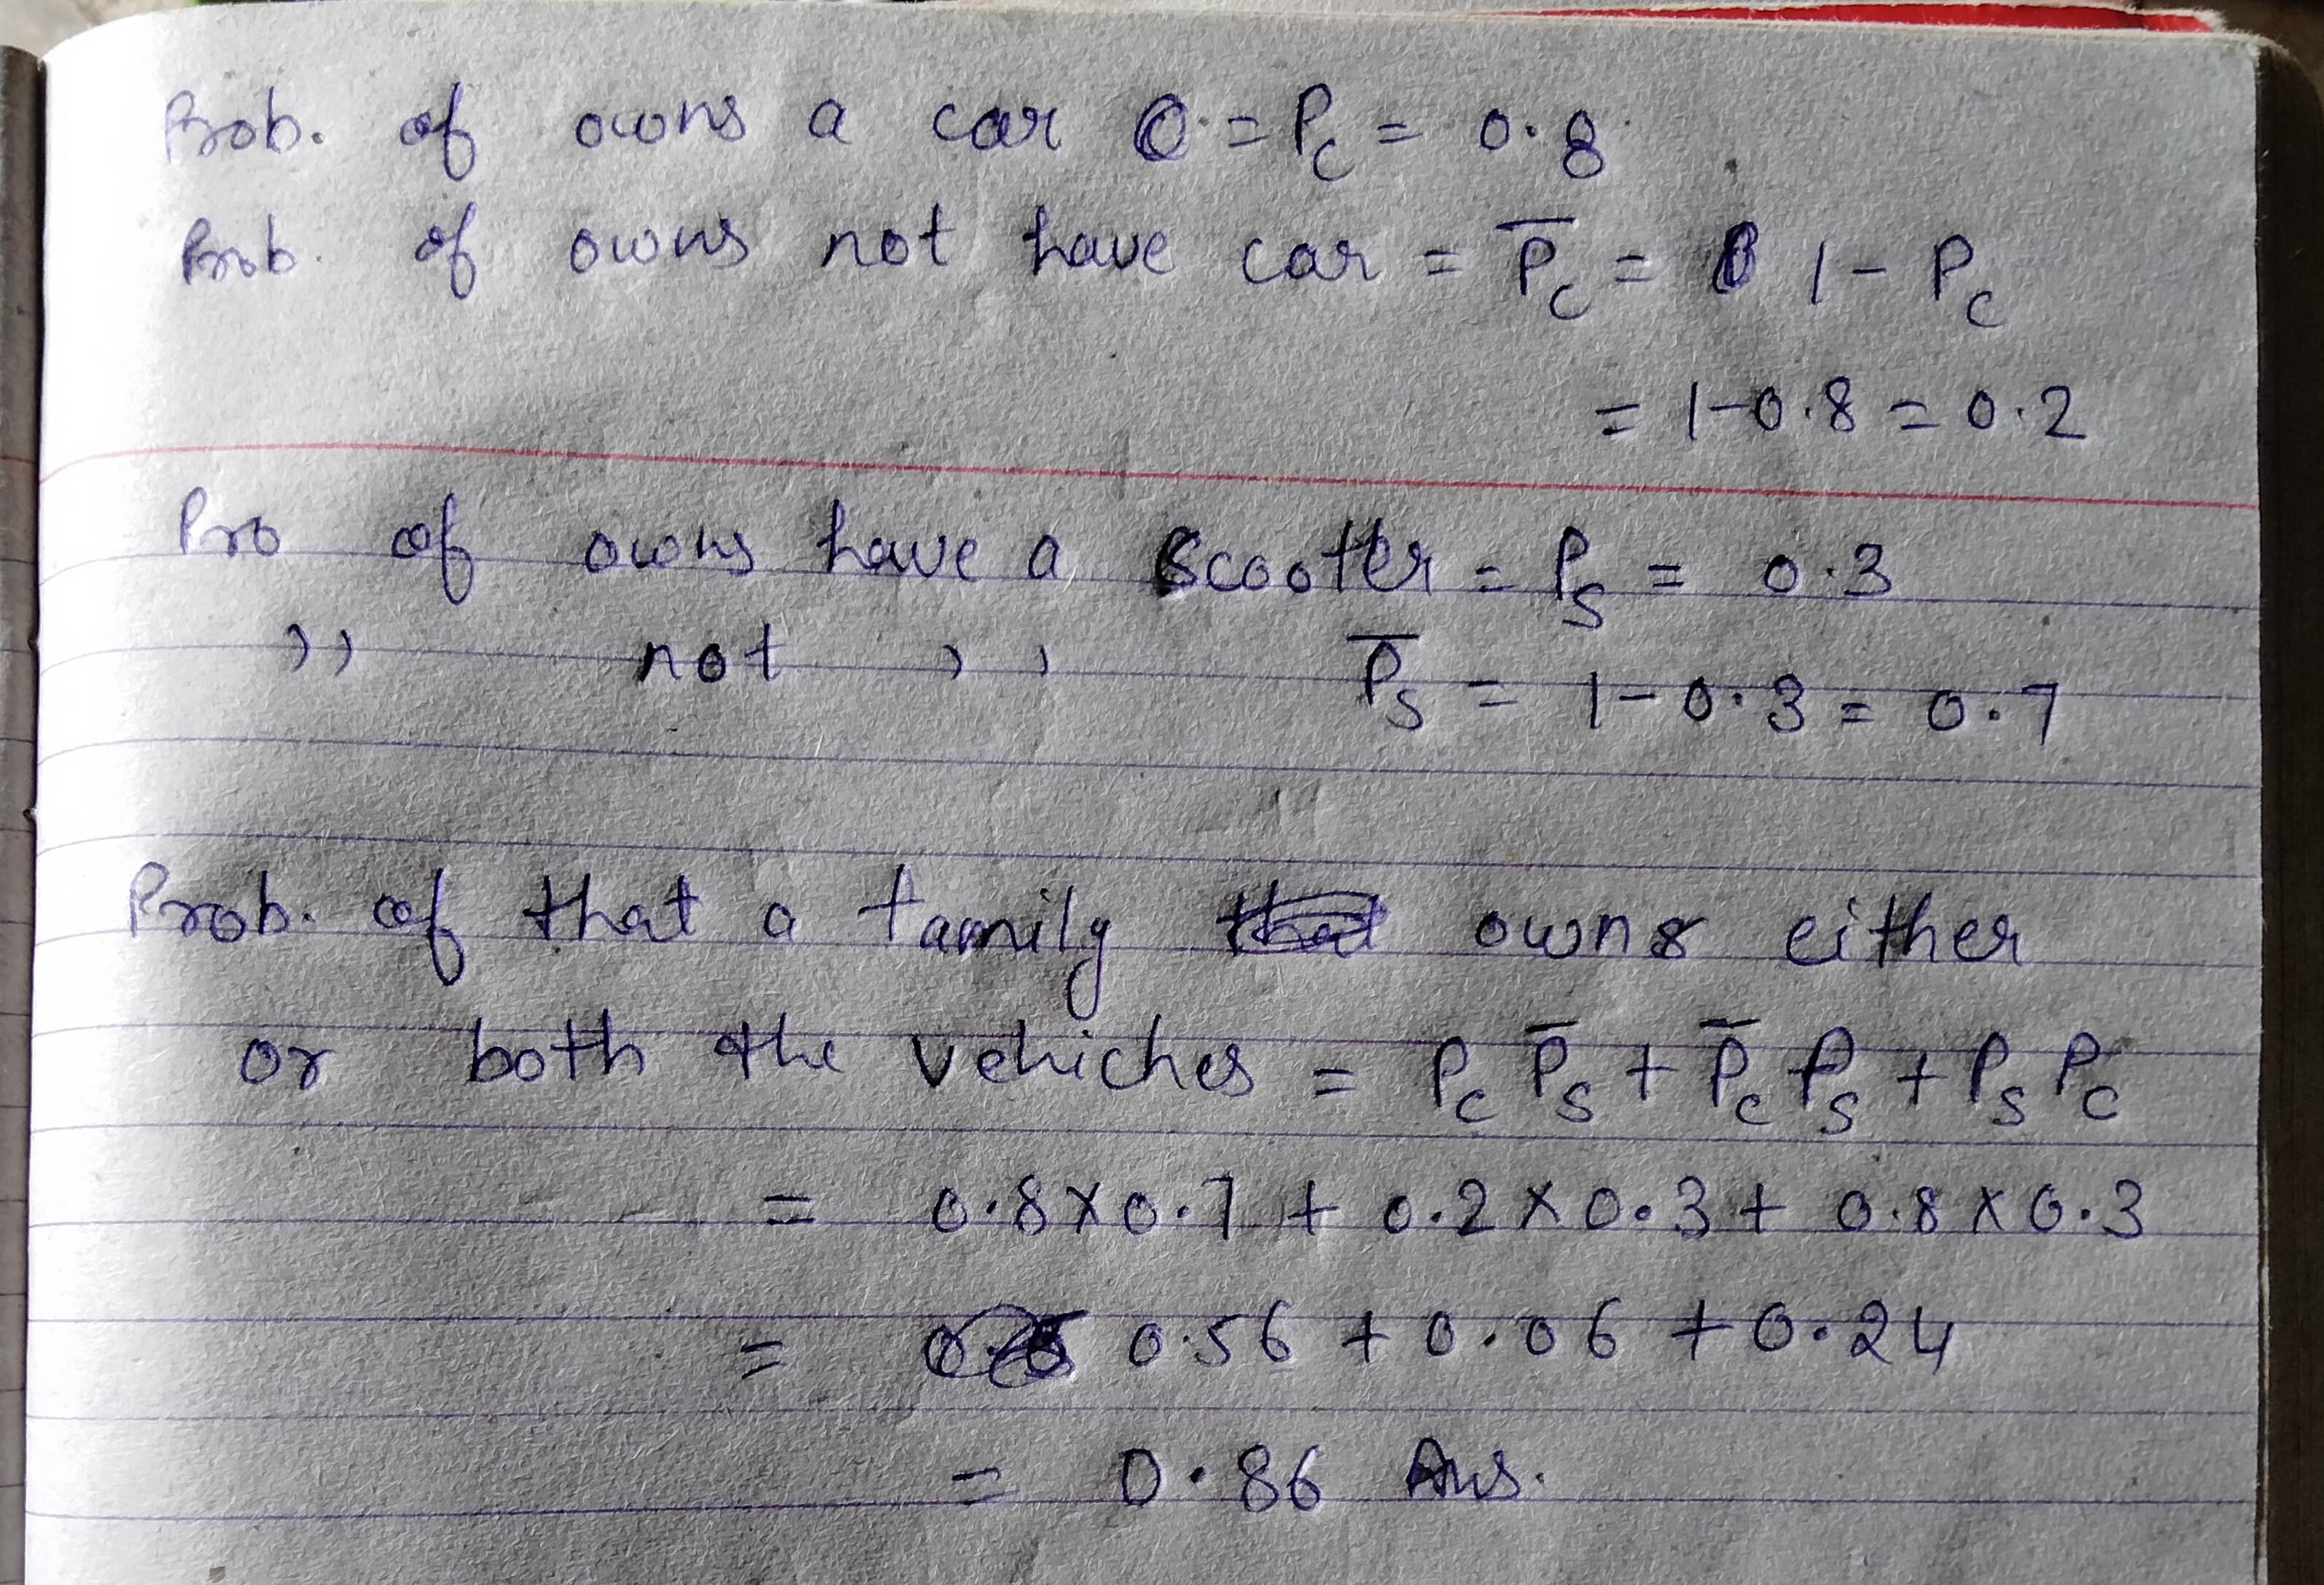 Prob. of owns a car = Pc = 0.8
Prob. of owns not have car = P̅c = 1 - Pc
= 1-0.8 = 0.2
Pro of owns have a Scooter = Ps = 0.3
,, not ,, P̅s = 1-0.3 = 0.7
Prob. of that a family owns either
or both the vehicles = Pc P̅s + P̅c Ps + Ps Pc
= 0.8×0.7 + 0.2×0.3 + 0.8×0.3
= 0.56 + 0.06 + 0.24
= 0.86 Ans.